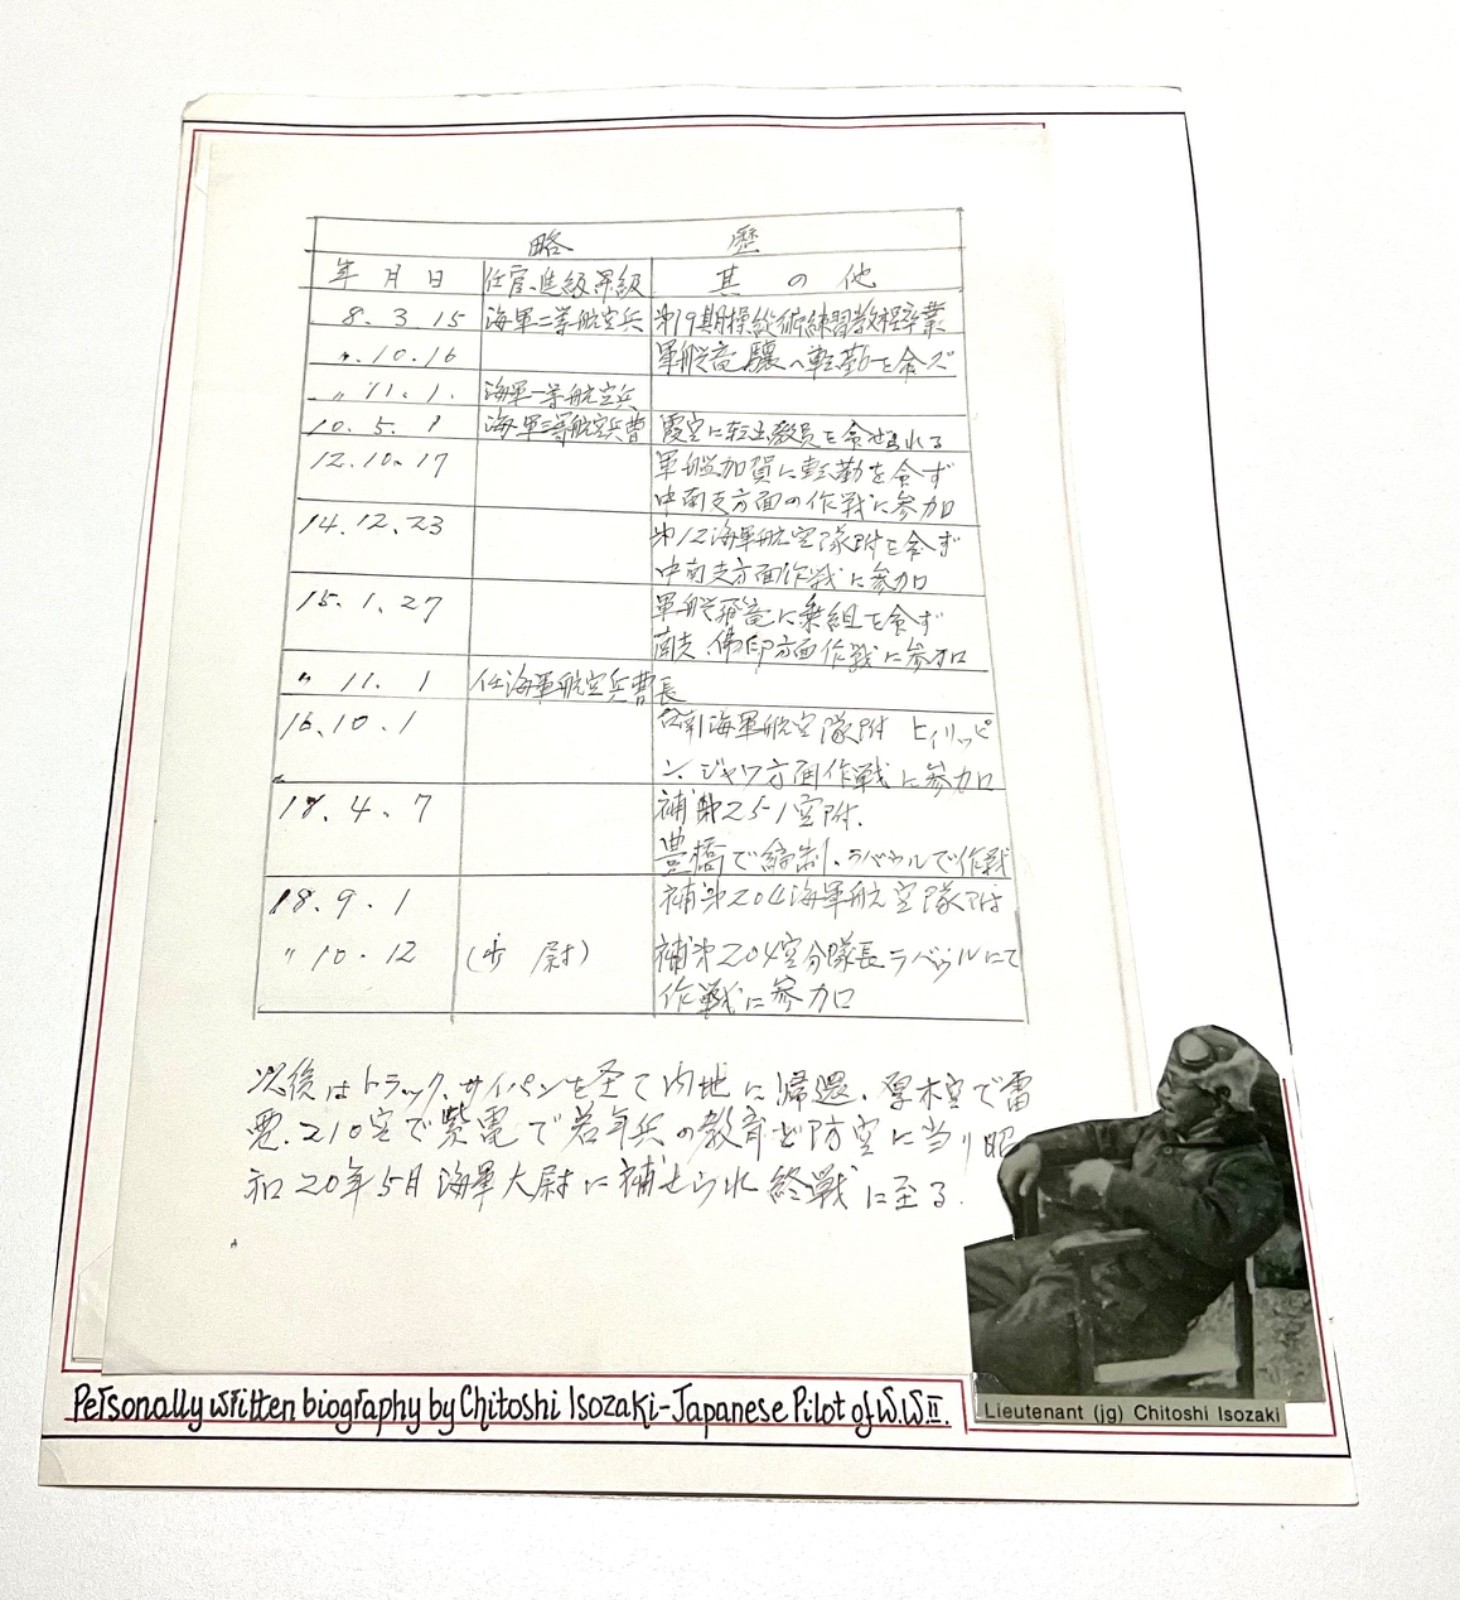 略 歴
年 月 日 任官、進級昇級 其 の 他
8. 3 15 海軍二等航空兵 第19期操縦術練習教程卒業
〃. 10. 16 軍艦竜驤へ転勤を命ズ
〃 11. 1. 海軍一等航空兵
10. 5. 1 海軍三等航空兵曹 霞空に転出教員を命ぜられる
12. 10. 17 軍艦加賀に転勤を命ず
中南支方面の作戦に参加
14. 12. 23 第12海軍航空隊附を命ず
中南支方面作戦に参加
15. 1. 27 軍艦飛竜に乗組を命ず
南支、佛印方面作戦に参加
〃 11. 1 任海軍航空兵曹長
16. 10. 1 台南海軍航空隊附 ヒィリッピ
ン、ジャワ方面作戦に参加
18. 4. 7 補第251空附.
豊橋で編制、ラバウルで作戦
18. 9. 1 補第204海軍航空隊附
〃 10. 12 (少 尉) 補第204空分隊長ラバウルにて
作戦に参加
以後はトラック、サイパンを経て内地に帰還、厚木空で雷
電、210空で紫電で若年兵の教育と防空に当り昭
和20年5月海軍大尉に補せられ終戦に至る.
Personally written biography by Chitoshi Isozaki-Japanese Pilot of W.W.II.
Lieutenant (jg) Chitoshi Isozaki